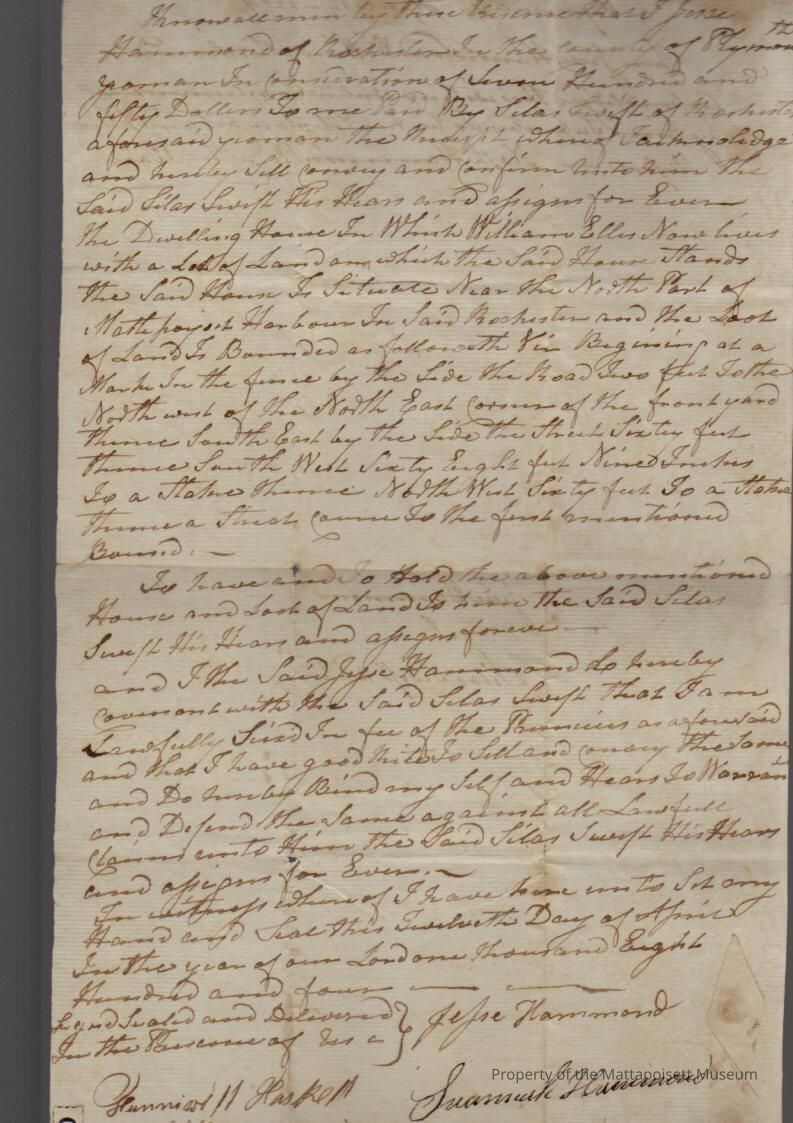 Know all men by these Presence that I Jesse
Hammond of Rochester In the county of Plymouth
yoman In consideration of Seven Hundred and
fifty Dollers To me Paid By Silas Swift of Rochester
aforesaid yoman the Receipt whereof I acknolidge
and hereby Sell convey and confirm unto him the
Said Silas Swift His Hears and assigns for Ever
the Dwelling House In Which William Ellis Now lives
with a Lot of Land on which the Said House Stands
the Said House Is Situate Near the North Part of
Mattepoyset Harbour In Said Rochester and the Loot
of Land Is Bounded as followeth Viz Begining at a
Mark In the fence by the Side the Road Two feet To the
North west of the North East corner of the front yard
thence South East by the Side the Street Sixty feet
thence South West Sixty Eight feet Nine Inches
To a Stake thence North West Sixty feet To a Stake
thence a Strait course To the first mentioned
Bound. —
To have and To Hold the above mentioned
House and Loot of Land To him the Said Silas
Swift His Hears and assigns forever —
and I the Said Jesse Hammond do hereby
covenant with the Said Silas Swift that I am
Lawfully Seized In fee of the Premises as aforesaid
and that I have good Rite To Sell and convey the Same
and Do hereby Bind my Self and Hears To Warran
and Defend the Same against all Lawfull
claims unto Him the Said Silas Swift His Hears
and assigns for Ever. —
In witness whereof I have here unto Set my
Hand and Seal this Twelveth Day of April
In the year of our Lord one thousand Eight
Hundred and four — —
Signd Sealed and Delivered } Jesse Hammond
In the Presence of us
Hunniwell Haskell Hammond
Property of the Mattapoisett Museum